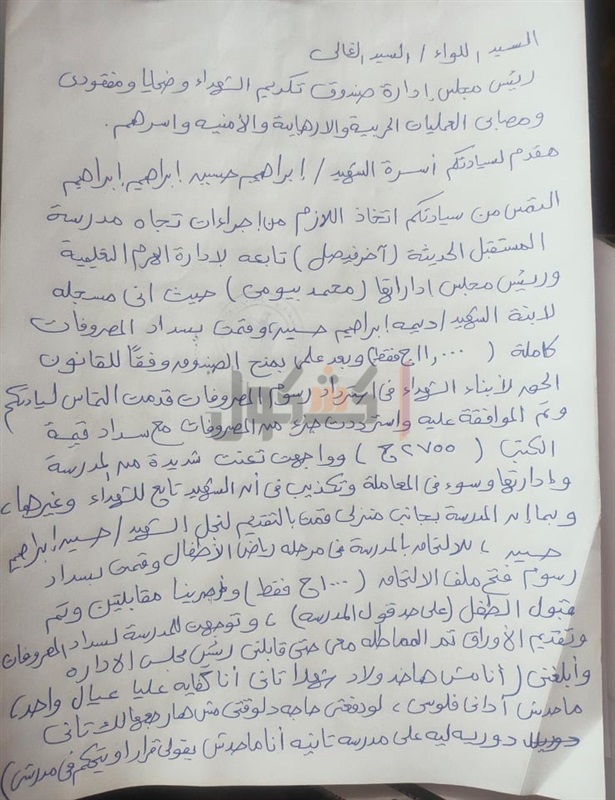 السيد اللواء / السيد الغالى
رئيس مجلس إدارة صندوق تكريم الشهداء وضحايا ومفقودى
ومصابى العمليات الحربية والارهابية والأمنيه واسرهم.
مقدم لسيادتكم أسرة الشهيد / إبراهيم حسين إبراهيم إبراهيم
التمس من سيادتكم اتخاذ اللازم من إجراءات تجاه مدرسة
المستقبل الحديثة (آخر فيصل) تابعه لادارة الهرم التعليمية
ورئيس مجلس اداراتها (محمد بيومى) حيث انى مسجله
لابنة الشهيد / ديمه إبراهيم حسين وقمت بسداد المصروفات
كاملة ( فقط) وبعد علمى بمنح الصندوق وفقاً للقانون
الحق لأبناء الشهداء فى استرداد رسوم المصروفات قدمت التماس لسيادتكم
وتم الموافقة عليه واستردت جزء من المصروفات مع سداد قيمة
الكتب ( ٢٧٠٠ ج ) وواجهت تعنت شديدة من المدرسة
وإدارتها وسوء فى المعاملة وتكذيب فى أن الشهيد تابع للشهداء وغيرها،
وبما إن المدرسة بجانب منزلى قمت بالتقديم لنجل الشهيد / حسين إبراهيم
حسين ، للالتحاق بالمدرسة فى مرحلة رياض الأطفال وقمت بسداد
رسوم فتح ملف الالتحاق ( ١٠٠٠ج فقط) مقابلتين وتم
قبول الطفل (على حد قول المدرسه) ، وتوجهت للمدرسة لسداد المصروفات
وتقديم الأوراق تم المماطله معى حتى قابلنى رئيس مجلس الاداره
وأبلغنى ( أنا مش هاخد ولاد شهدا تانى أنا كفايه عليا عيال واحد،
ماحدش أدانى فلوسى ، لو دفعتى حاجه دلوقتى مش هارجعهالك تانى
دوريله ليه على مدرسه تانيه أنا ماحدش يقولى قرار او يتحكم فى مدرستى)
كشكول